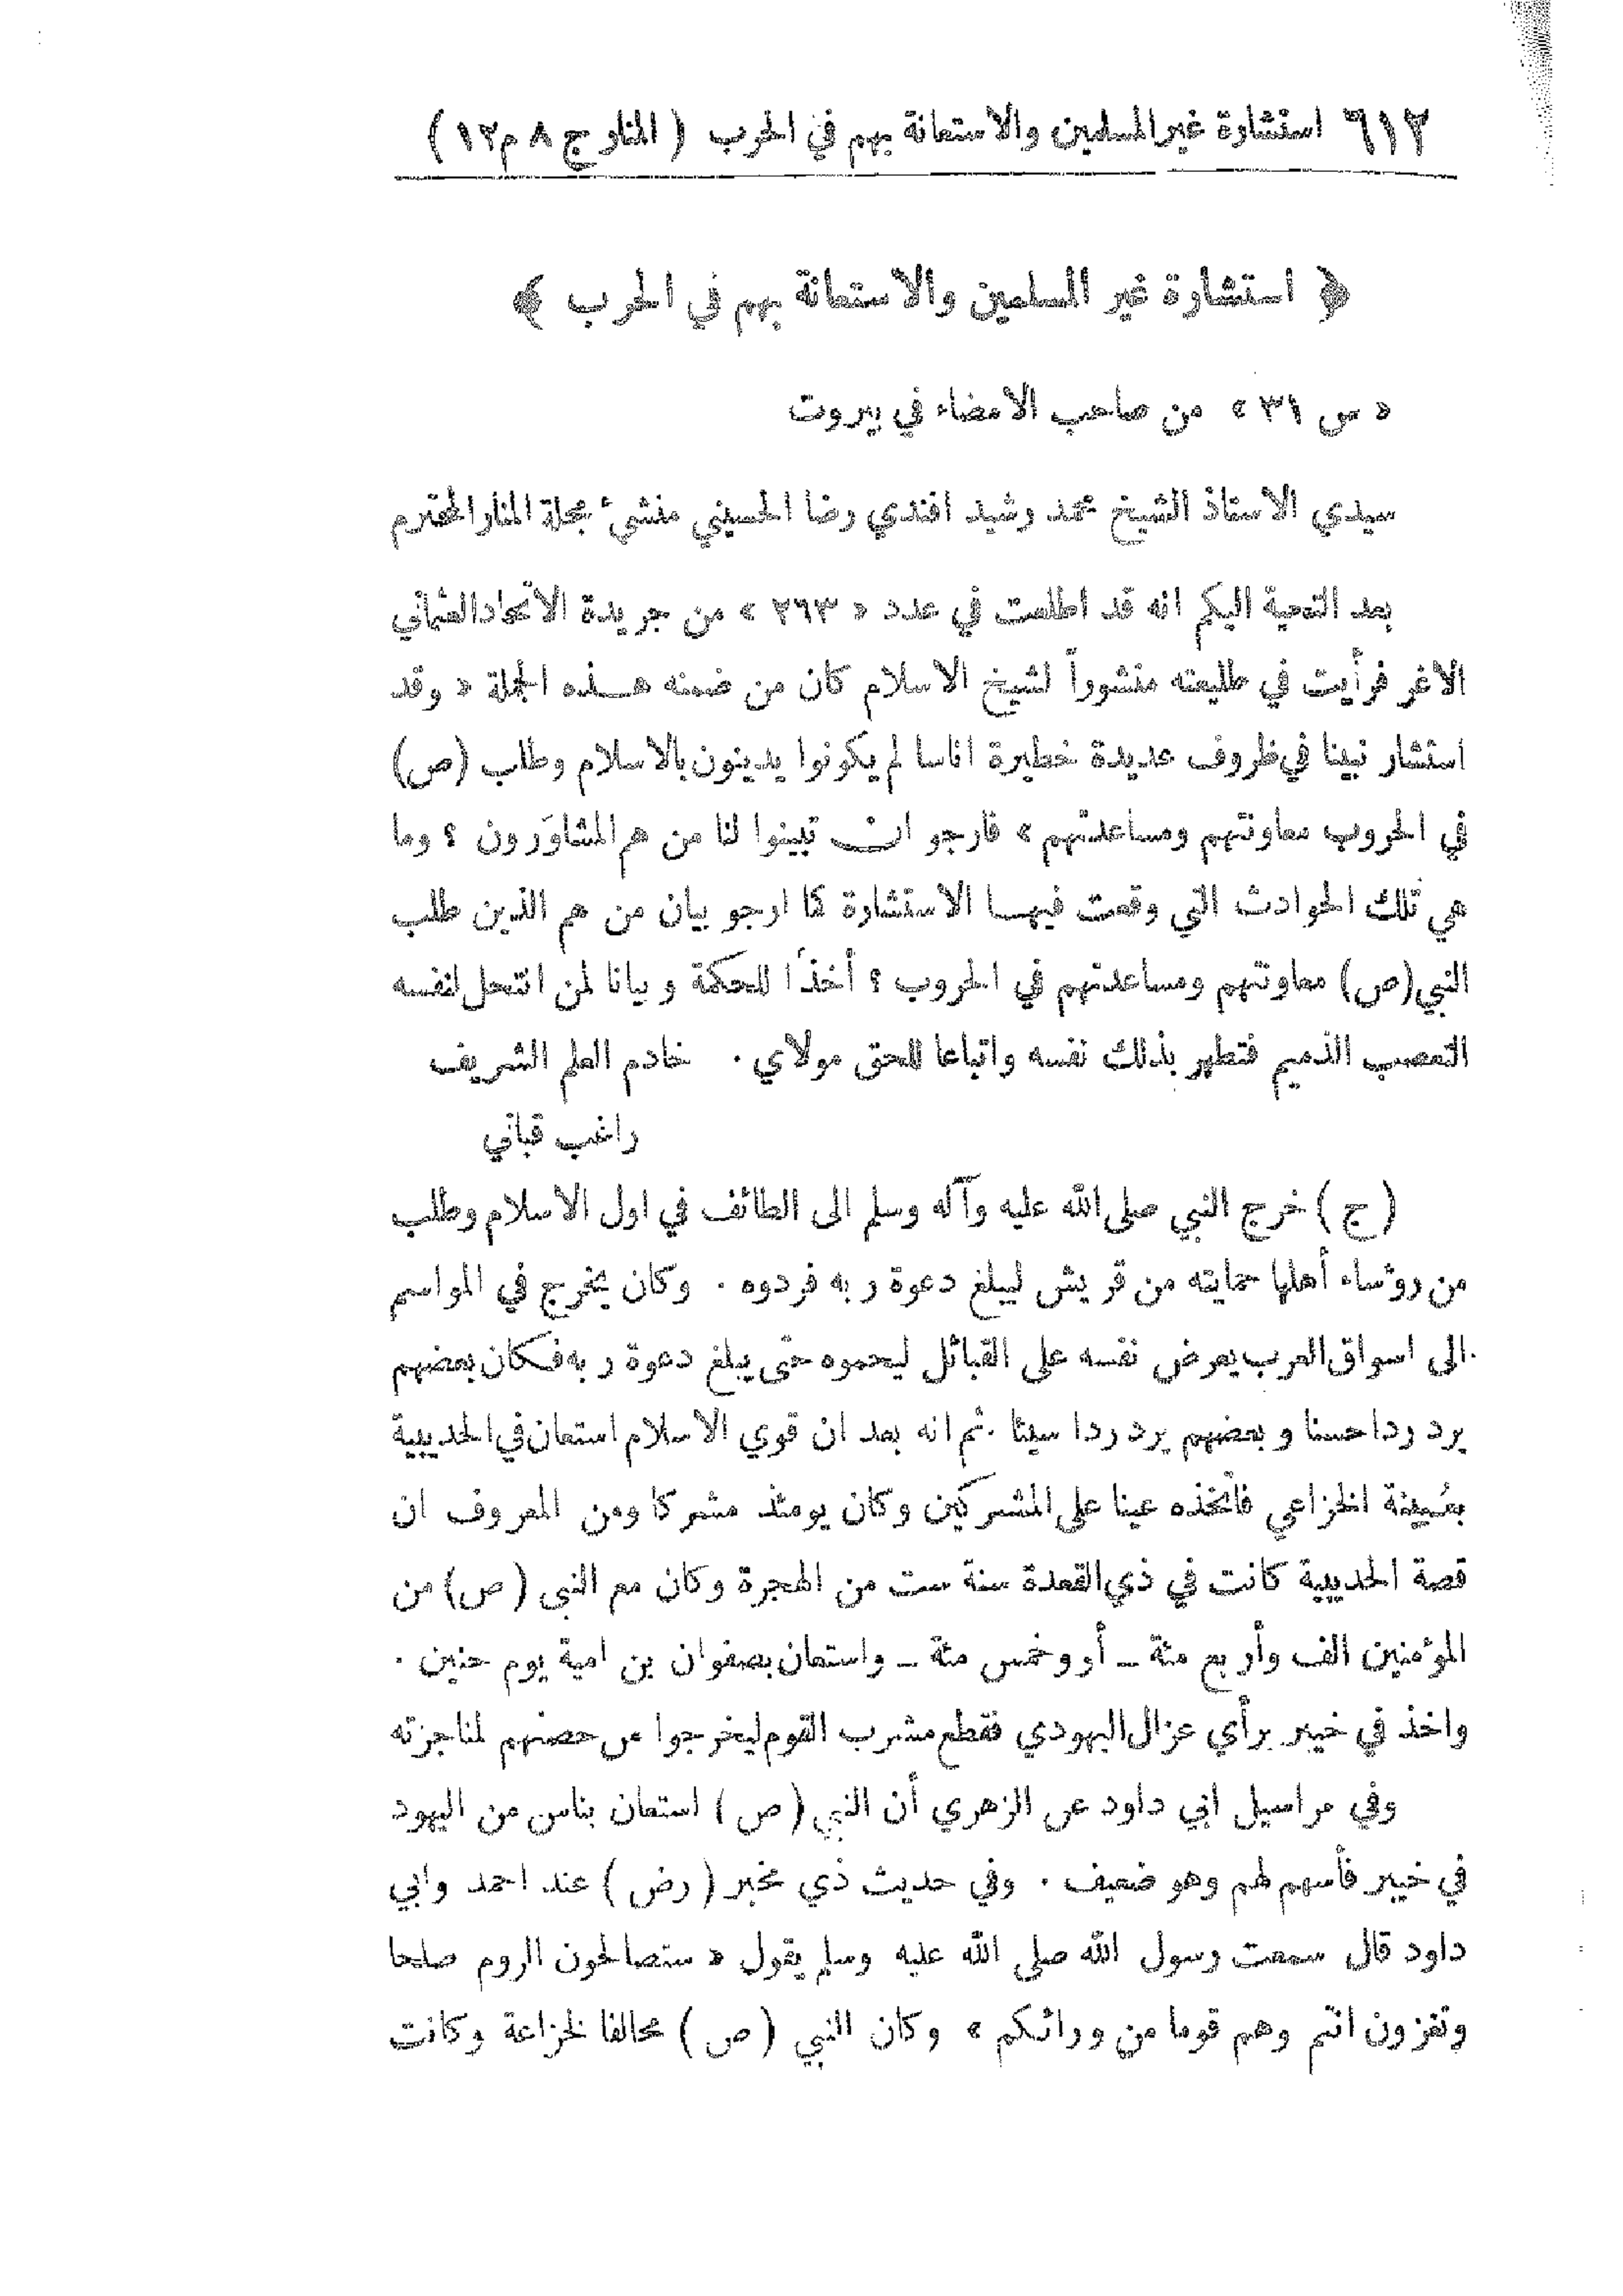 ٦١٢ استشارة غير المسلمين والاستعانة بهم في الحرب ( المنار ج ٨ م ١٢ )
﴿ استشارة غير المسلمين والاستعانة بهم في الحرب ﴾
« س ٣١ » من صاحب الامضاء في بيروت
سيدي الاستاذ الشيخ محمد رشيد افندي رضا الحسيني منشئ مجلة المنار المحترم
بعد التحية اليكم انه قد اطلعت في عدد « ٢٦٣ » من جريدة الاتحاد العثماني
الاغر فرأيت في طليعته منشوراً لشيخ الاسلام كان من ضمنه هذه الجملة « وقد
استشار نبينا في ظروف عديدة خطيرة اناسا لم يكونوا يدينون بالاسلام وطلب (ص)
في الحروب معاونتهم ومساعدتهم » فارجو ان تبينوا لنا من هم المشاوَرون ؟ وما
هي تلك الحوادث التي وقعت فيها الاستشارة كما ارجو بيان من هم الذين طلب
النبي (ص) معاونتهم ومساعدتهم في الحروب ؟ أخذًا للحكمة وبيانا لمن انتحل لنفسه
التعصب الذميم فتطهر بذلك نفسه واتباعا للحق مولاي . خادم العلم الشريف
راغب قباني
( ج ) خرج النبي صلى الله عليه وآله وسلم الى الطائف في اول الاسلام وطلب
من رؤساء أهلها حمايته من قريش ليبلغ دعوة ربه فردوه . وكان يخرج في المواسم
الى اسواق العرب يعرض نفسه على القبائل ليحموه حتى يبلغ دعوة ربه فكان بعضهم
يرد ردا حسنا وبعضهم يرد ردا سيئا . ثم انه بعد ان قوي الاسلام استعان في الحديبية
بعُيينة الخزاعي فاتخذه عينا على المشركين وكان يومئذ مشركا ومن المعروف ان
قصة الحديبية كانت في ذي القعدة سنة ست من الهجرة وكان مع النبي ( ص ) من
المؤمنين الف وأربع مئة ـ أو وخمس مئة ـ واستعان بصفوان بن امية يوم حنين .
واخذ في خيبر برأي عزال اليهودي فقطع مشرب القوم ليخرجوا من حصنهم لمناجزته
وفي مراسيل ابي داود عن الزهري أن النبي ( ص ) استعان بناس من اليهود
في خيبر فأسهم لهم وهو ضعيف . وفي حديث ذي مخبر ( رض ) عند احمد وابي
داود قال سمعت رسول الله صلى الله عليه وسلم يقول « ستصالحون الروم صلحا
وتغزون انتم وهم قوما من ورائكم » وكان النبي ( ص ) محالفا لخزاعة وكانت